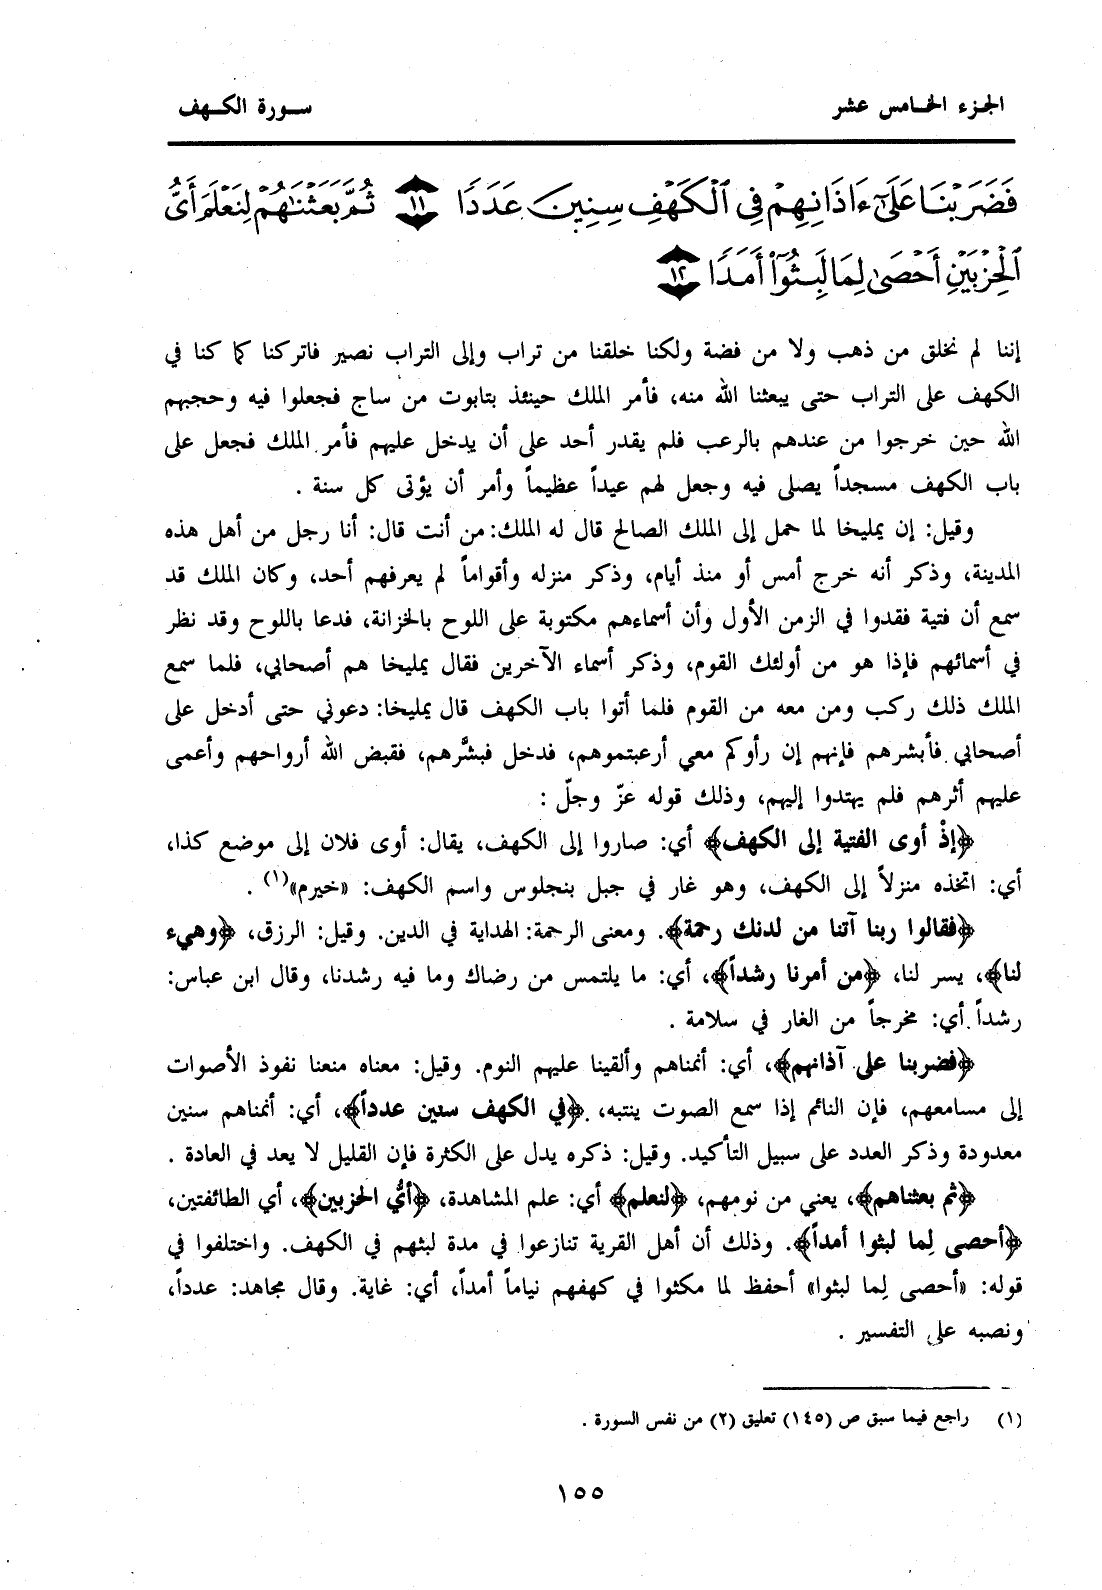 الجزء الخامس عشر
سورة الكهف
فَضَرَبْنَا عَلَىٰٓ ءَاذَانِهِمْ فِى ٱلْكَهْفِ سِنِينَ عَدَدًا ١١ ثُمَّ بَعَثْنَٰهُمْ لِنَعْلَمَ أَىُّ
ٱلْحِزْبَيْنِ أَحْصَىٰ لِمَا لَبِثُوٓا۟ أَمَدًا ١٢
إننا لم نخلق من ذهب ولا من فضة ولكنا خلقنا من تراب وإلى التراب نصير فاتركنا كما كنا في
الكهف على التراب حتى يبعثنا الله منه، فأمر الملك حينئذ بتابوت من ساج فجعلوا فيه وحجبهم
الله حين خرجوا من عندهم بالرعب فلم يقدر أحد على أن يدخل عليهم فأمر الملك فجعل على
باب الكهف مسجداً يصلى فيه وجعل لهم عيداً عظيماً وأمر أن يؤتى كل سنة .
وقيل: إن يمليخا لما حمل إلى الملك الصالح قال له الملك: من أنت قال: أنا رجل من أهل هذه
المدينة، وذكر أنه خرج أمس أو منذ أيام، وذكر منزله وأقواماً لم يعرفهم أحد، وكان الملك قد
سمع أن فتية فقدوا في الزمن الأول وأن أسماءهم مكتوبة على اللوح بالخزانة، فدعا باللوح وقد نظر
في أسمائهم فإذا هو من أولئك القوم، وذكر أسماء الآخرين فقال يمليخا هم أصحابي، فلما سمع
الملك ذلك ركب ومن معه من القوم فلما أتوا باب الكهف قال يمليخا: دعوني حتى أدخل على
أصحابي فأبشرهم فإنهم إن رأوكم معي أرعبتموهم، فدخل فبشَّرهم، فقبض الله أرواحهم وأعمى
عليهم أثرهم فلم يهتدوا إليهم، وذلك قوله عزّ وجلّ :
﴿إذْ أوى الفتية إلى الكهف﴾ أي: صاروا إلى الكهف، يقال: أوى فلان إلى موضع كذا،
أي: اتخذه منزلاً إلى الكهف، وهو غار في جبل بنجلوس واسم الكهف: «خيرم»(١) .
﴿فقالوا ربنا آتنا من لدنك رحمة﴾. ومعنى الرحمة: الهداية في الدين. وقيل: الرزق، ﴿وهيء
لنا﴾، يسر لنا، ﴿من أمرنا رشداً﴾، أي: ما يلتمس من رضاك وما فيه رشدنا، وقال ابن عباس:
رشداً أي: مخرجاً من الغار في سلامة .
﴿فضربنا على آذانهم﴾، أي: أنمناهم وألقينا عليهم النوم. وقيل: معناه منعنا نفوذ الأصوات
إلى مسامعهم، فإن النائم إذا سمع الصوت ينتبه، ﴿في الكهف سنين عدداً﴾، أي: أنمناهم سنين
معدودة وذكر العدد على سبيل التأكيد. وقيل: ذكره يدل على الكثرة فإن القليل لا يعد في العادة .
﴿ثم بعثناهم﴾، يعني من نومهم، ﴿لنعلم﴾ أي: علم المشاهدة، ﴿أيُّ الحزبين﴾، أي الطائفتين،
﴿أحصى لِما لبثوا أمداً﴾. وذلك أن أهل القرية تنازعوا في مدة لبثهم في الكهف. واختلفوا في
قوله: «أحصى لِما لبثوا» أحفظ لما مكثوا في كهفهم نياماً أمداً، أي: غاية. وقال مجاهد: عدداً،
ونصبه على التفسير .
(١) راجع فيما سبق ص (١٤٥) تعليق (٢) من نفس السورة .
١٥٥